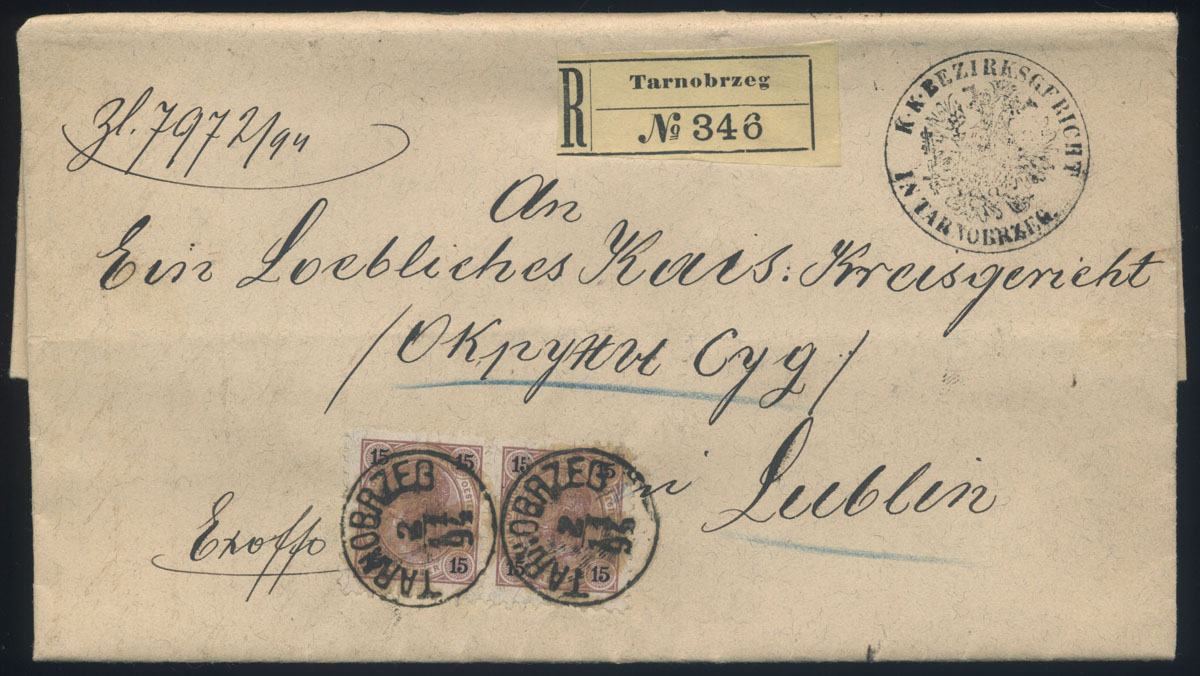 R Tarnobrzeg
№ 346
K.K. BEZIRKSGERICHT
IN TARNOBRZEG.
Zl. 7972/94
An
Ein Loebliches Kais: Kreisgericht
/Окружны Суд/
in Lublin
Exoffo
15 15 15
15 15 15 15
TARNOBRZEG
2
TARNOBRZEG
2